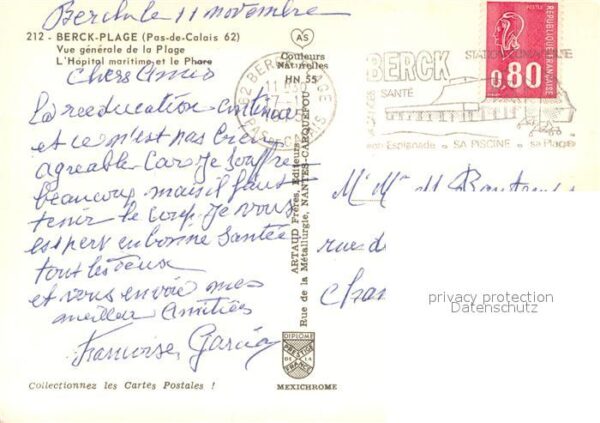 Berck le 11 novembre
212 - BERCK-PLAGE (Pas-de-Calais 62)
Vue générale de la Plage
L'Hôpital maritime et le Phare
chers Amis
La rééducation continue
et ce n'est pas bien
agreable Car Je souffre
beaucoup mais il faut
tenir le coup. Je vous
espere en bonne Santée
tout les deux
et vous envoie mes
meilleur Amitiées
Francoise Garcia
Collectionnez les Cartes Postales !
AS
Couleurs
Naturelles
HN 55
ARTAUD Frères, Editeurs
Rue de la Métallurgie, NANTES-CARQUEFOU
DIPLOME
PRESTIGE
DE LA
FRANCE
MEXICHROME
62 BERCK PLAGE
PAS-DE-CALAIS
BERCK
SANTÉ
son Esplanade - SA PISCINE - sa Plage
0,80
POSTES
REPUBLIQUE FRANÇAISE
Mr Mme
rue d
Cha
privacy protection
Datenschutz